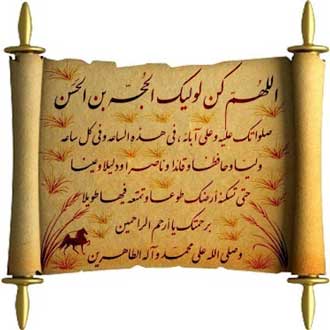 اللهم كن لوليك الحجة بن الحسن
صلواتك عليه وعلى آبائه، في هذه الساعة وفي كل ساعة
وليا وحافظا وقائدا وناصرا ودليلا وعينا
حتى تسكنه أرضك طوعا وتمتعه فيها طويلا
برحمتك يا أرحم الراحمين
وصلى الله على محمد وآله الطاهرين